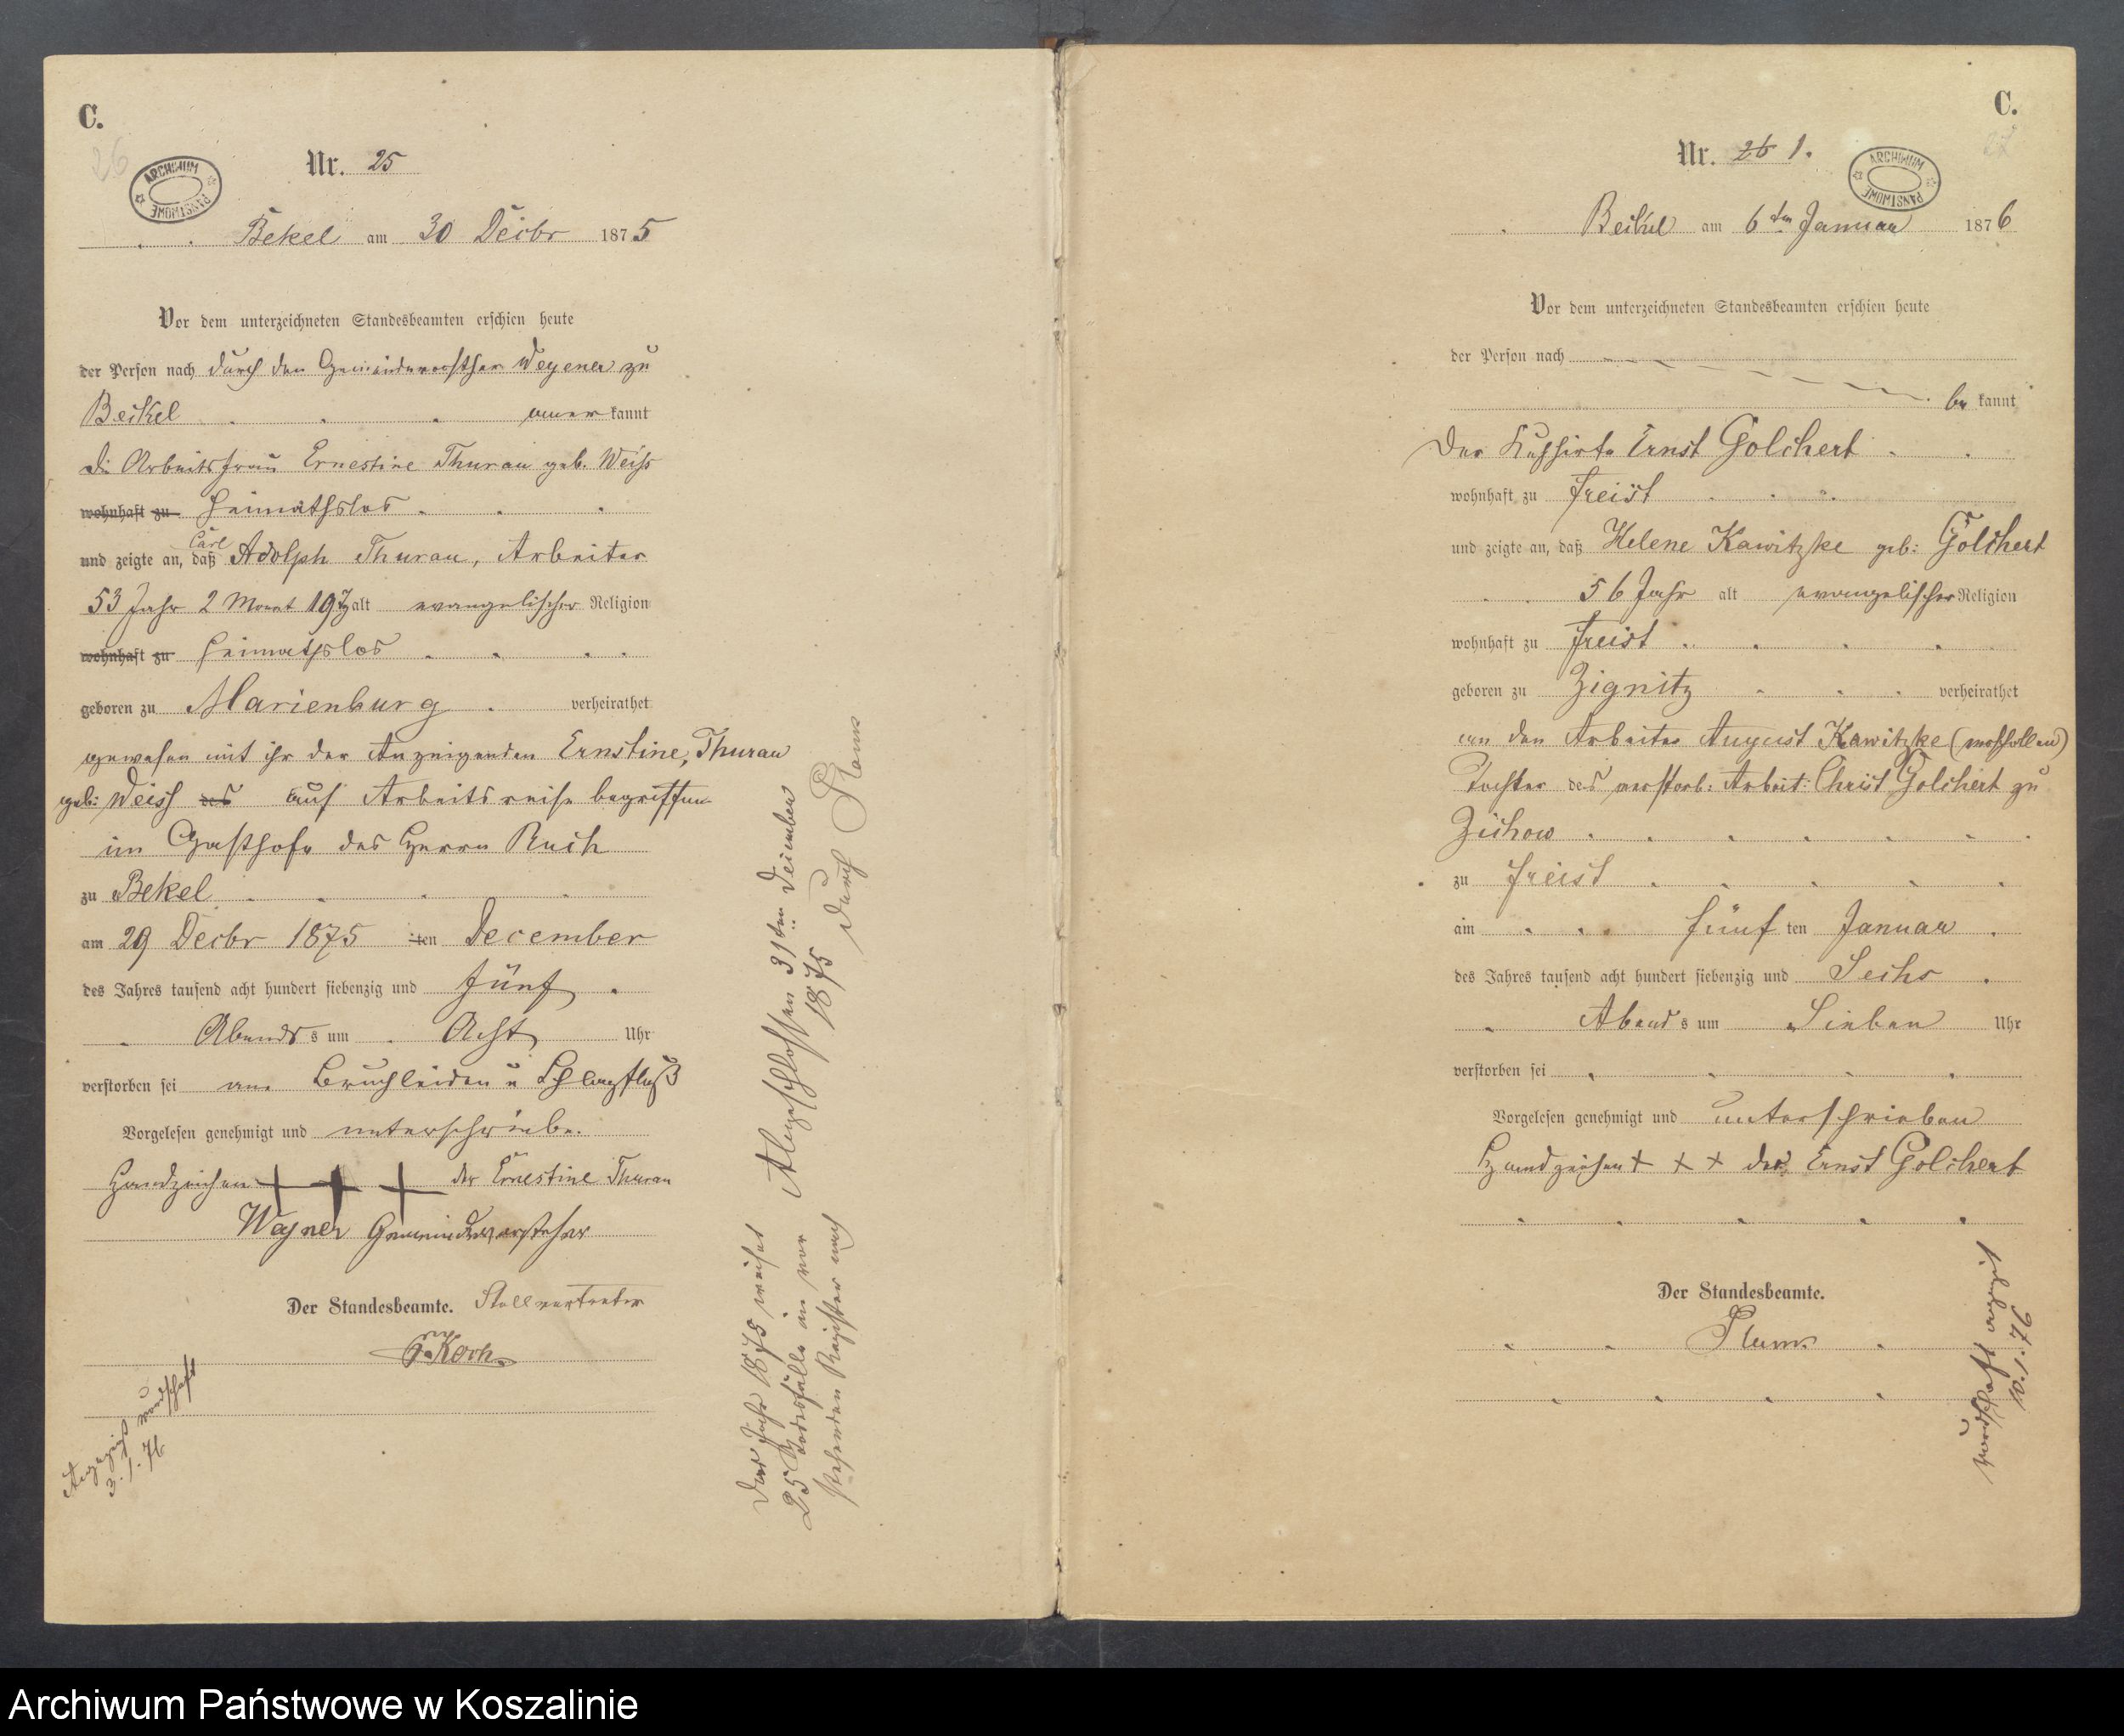 C.
26
Nr. 25
ARCHIWUM PAŃSTWOWE
Bekel am 30 Decbr 1875
Vor dem unterzeichneten Standesbeamten erschien heute
der Person nach durch den Gemeindevorsther Wegener zu
Beckel anerkannt
die Arbeitsfrau Ernestine Thurau geb. Weiss
wohnhaft zu heimathslos
und zeigte an, daß Carl Adolph Thurau, Arbeiter
53 Jahr 2 Monat 19 T alt evangelischer Religion
wohnhaft zu heimathslos
geboren zu Marienburg verheirathet
gewesen mit ihr der Anzeigenden Ernstine, Thurau
geb: Weiss des auf Arbeitsreise begriffen
im Gasthofe des Herrn Ruch
zu Bekel
am 29 Decbr 1875 ten December
des Jahres tausend acht hundert siebenzig und fünf
Abends s um Acht Uhr
verstorben sei am Bruchleiden u Schlagfluß
Vorgelesen genehmigt und unterschrieben
Handzeichen + + + der Ernestine Thurau
Wegner Gemeindevorsteher
Der Standesbeamte. Stellvertreter
Koch
Angezeigt
3.1.76
Das Jahr 1875 weiset
25 Todesfälle im vor
stehenden Register nach
Abgeschlossen 31ten December
1875 durch
C.
27
Nr. 26 1.
ARCHIWUM PAŃSTWOWE
Beckel am 6ten Januar 1876
Vor dem unterzeichneten Standesbeamten erschien heute
der Person nach
bekannt
Der Kuhhirte Ernst Golchert
wohnhaft zu Freist
und zeigte an, daß Helene Kawitzke geb: Golchert
56 Jahr alt evangelischer Religion
wohnhaft zu Freist
geboren zu Zignitz verheirathet
an den Arbeiter August Kawitzke (verschollen)
Tochter des verstorb: Arbeit: Christ Golchert zu
Zichow
zu Freist
am fünf ten Januar
des Jahres tausend acht hundert siebenzig und Sechs
Abend s um Sieben Uhr
verstorben sei
Vorgelesen genehmigt und unterschrieben
Handzeichen + + + des Ernst Golchert
Der Standesbeamte.
10.1.76
Archiwum Państwowe w Koszalinie